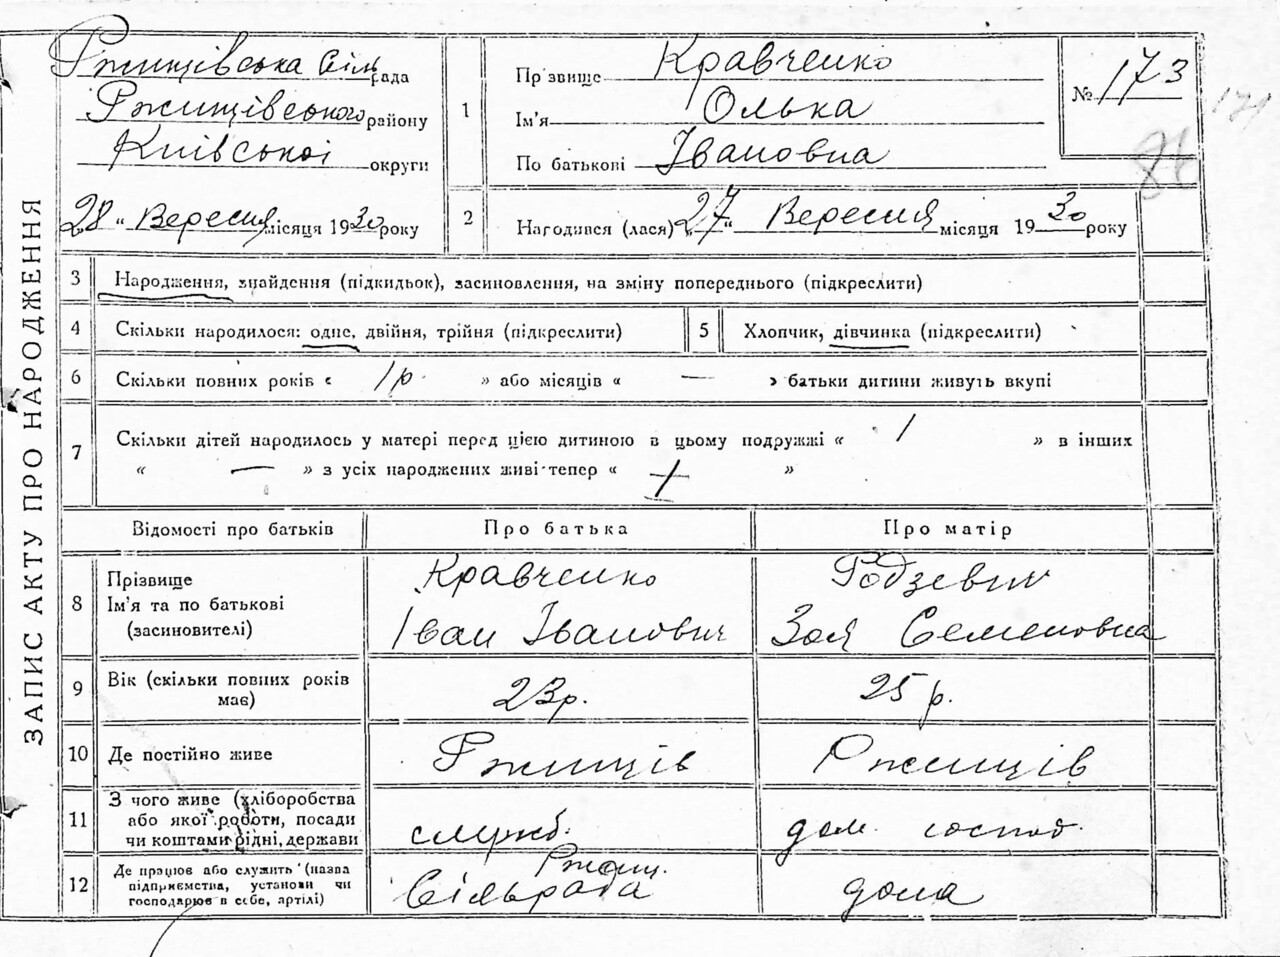 ЗАПИС АКТУ ПРО НАРОДЖЕННЯ
Ржищівська Сільрада
Ржищівського району
Київської округи
„28“ Вересня місяця 1930 року
1 Прізвище Кравченко
Ім'я Олька
По батькові Івановна
№ 173
171
86
2 Народився (лася) „27“ Вересня місяця 1930 року
3 Народження, знайдення (підкидьок), засиновлення, на зміну попереднього (підкреслити)
4 Скільки народилося: одне, двійня, трійня (підкреслити) 5 Хлопчик, дівчинка (підкреслити)
6 Скільки повних років « 1 р. » або місяців « — » батьки дитини живуть вкупі
7 Скільки дітей народилось у матері перед цією дитиною в цьому подружжі « 1 » в інших
« — » з усіх народжених живі тепер « 1 »
Відомості про батьків Про батька Про матір
8 Прізвище Кравченко Родзевич
Ім'я та по батькові Іван Іванович Зоя Семеновна
(засиновителі)
9 Вік (скільки повних років 23 р. 25 р.
має)
10 Де постійно живе Ржищів Ржищів
З чого живе (хліборобства
11 або якої роботи, посади служб. дом. господ.
чи коштами рідні, держави
Де працює або служить (назва Ржищ.
12 підприємства, установи чи Сільрада дома
господарює в себе, артілі)